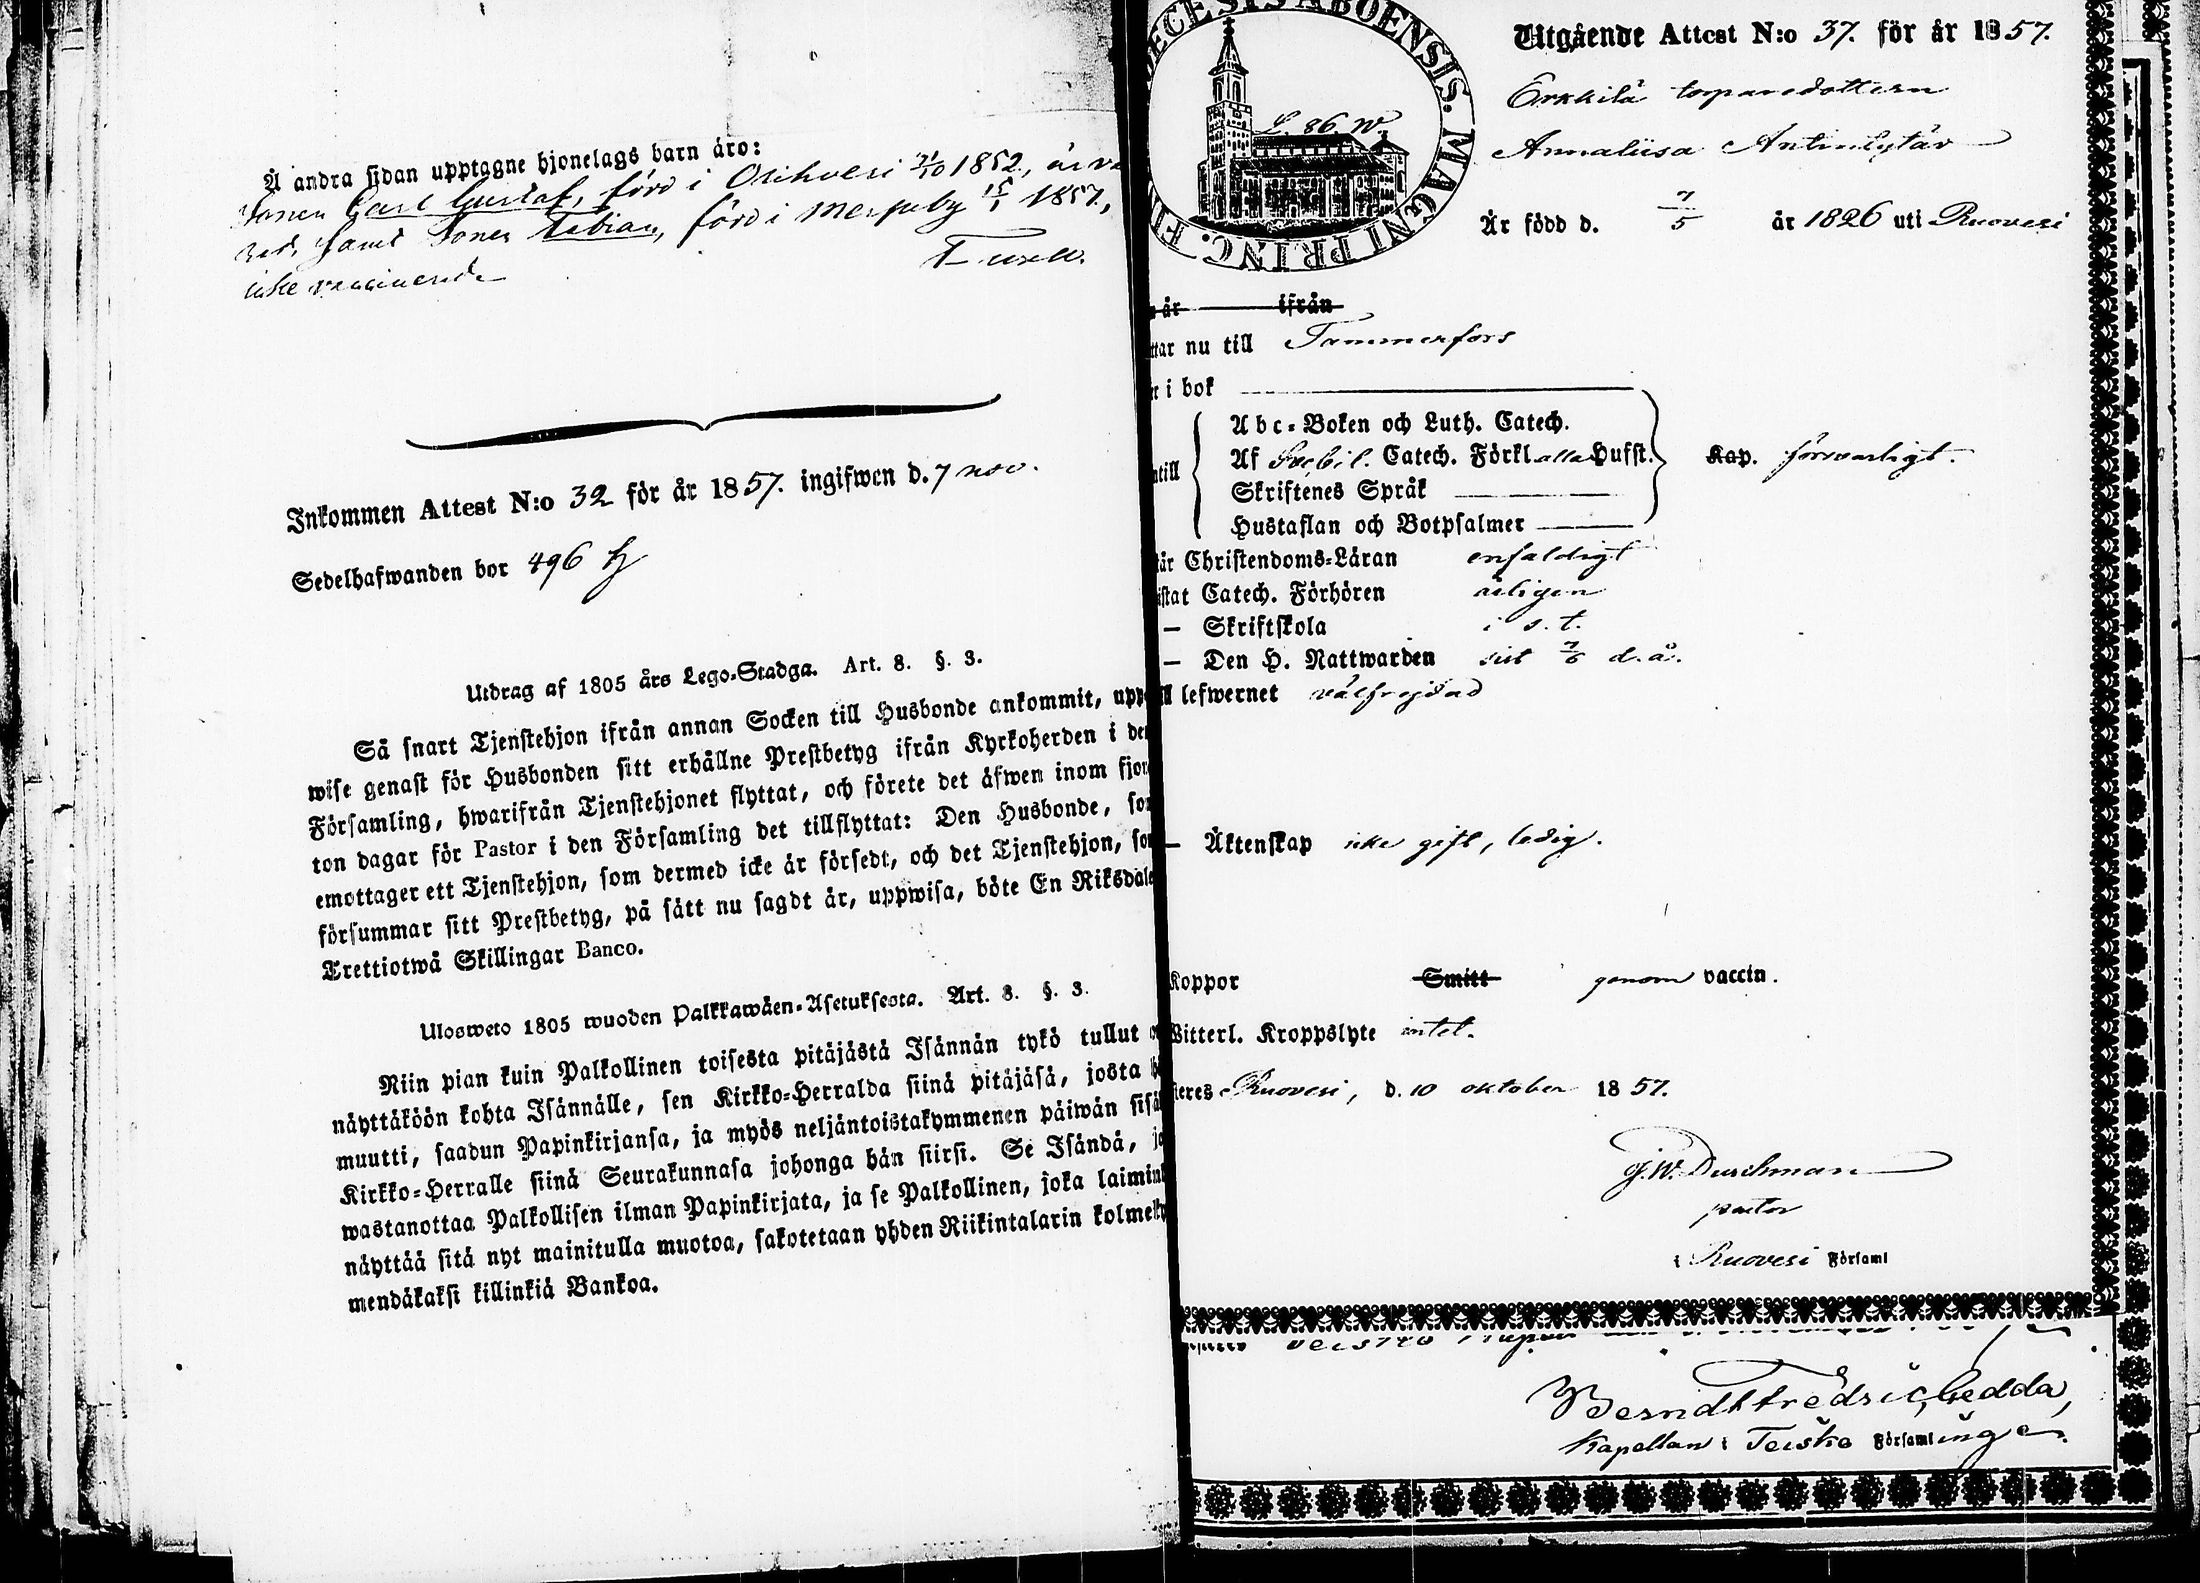 Å andra sidan upptagne hjonelags barn äro:
Sonen Carl Gustaf, född i Orihvesi 21/10 1852, är
samt Sonen Fabian, född i Messuby 15/1 1857,
icke vaccinerade
Inkommen Attest N:o 32 för år 1857. ingifwen d. 7 nov.
Sedelhafwanden bor 496
Utdrag af 1805 års Lego-Stadga. Art. 8. §. 3.
Så snart Tjenstehjon ifrån annan Socken till Husbonde ankommit, upp
wise genast för Husbonden sitt erhållne Prestbetyg ifrån Kyrkoherden i den
Församling, hwarifrån Tjenstehjonet flyttat, och förete det äfwen inom fjor
ton dagar för Pastor i den Församling det tillflyttat: Den Husbonde, som
emottager ett Tjenstehjon, som dermed icke är försedt, och det Tjenstehjon, som
försummar sitt Prestbetyg, på sätt nu sagdt är, uppwisa, böte En Riksdaler
Trettiotwå Skillingar Banco.
Ulosweto 1805 wuoden Palkkawäen-Asetuksesta. Art. 8. §. 3.
Niin pian kuin Palkollinen toisesta pitäjästä Isännän tykö tullut
näyttäköön kohta Isännälle, sen Kirkko-Herralda siinä pitäjäsä, josta
muutti, saadun Papinkirjansa, ja myös neljäntoistakymmenen päiwän sisä
Kirkko-Herralle siinä Seurakunnasa johonga hän siirsi. Se Isändä, jo
wastanottaa Palkollisen ilman Papinkirjata, ja se Palkollinen, joka laimin
näyttää sitä nyt mainitulla muotoa, sakotetaan yhden Riikintalarin kolmeky
mendäkaksi killinkiä Bankoa.
ECESIS ABOENSIS. MAGNI PRINC. FI
L. 86. W.
Utgående Attest N:o 37. för år 1857.
Erkkilä torparedottern
Annaliisa Antintytär
Är född d. 7/5 år 1826 uti Ruovesi
år ifrån
ttar nu till Tammerfors
i bok
Abc-Boken och Luth. Catech.
Af Svebil. Catech. Förkl alla Hufst.
Kap. försvarligt.
ntill
Skriftenes Språk
Hustaflan och Botpsalmer
är Christendoms-Läran enfaldigt
istat Catech. Förhören årligen
— Skriftskola i s. t.
— Den H. Nattwarden sist 7/6 d. å.
ll lefwernet välfrejdad
— Äktenskap icke gift, ledig.
Koppor Smitt genom vaccin.
Witterl. Kroppslyte intet.
steres Ruovesi, d. 10 oktober 1857.
J. W. Durchman
pastor
i Ruovesi Församl
Berndt Fredric Gedda,
Kapellan i Teisko Församlingen.